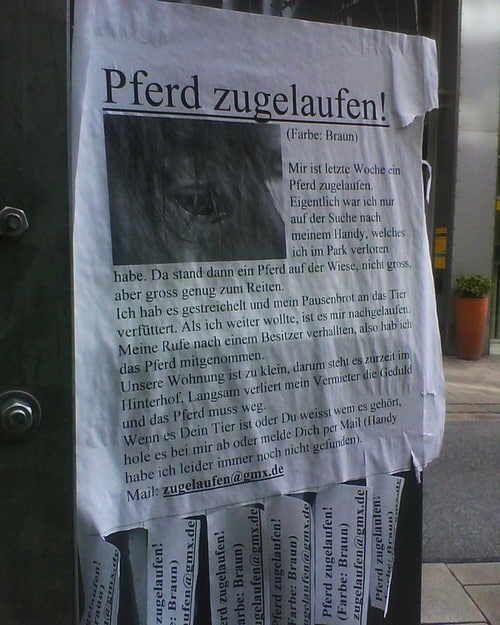 Pferd zugelaufen!
(Farbe: Braun)
Mir ist letzte Woche ein
Pferd zugelaufen.
Eigentlich war ich nur
auf der Suche nach
meinem Handy, welches
ich im Park verloren
habe. Da stand dann ein Pferd auf der Wiese, nicht gross,
aber gross genug zum Reiten.
Ich hab es gestreichelt und mein Pausenbrot an das Tier
verfüttert. Als ich weiter wollte, ist es mir nachgelaufen.
Meine Rufe nach einem Besitzer verhallten, also hab ich
das Pferd mitgenommen.
Unsere Wohnung ist zu klein, darum steht es zurzeit im
Hinterhof. Langsam verliert mein Vermieter die Geduld
und das Pferd muss weg.
Wenn es Dein Tier ist oder Du weisst wem es gehört,
hole es bei mir ab oder melde Dich per Mail (Handy
habe ich leider immer noch nicht gefunden).
Mail: zugelaufen@gmx.de
zugelaufen!
Braun)
n@gmx.de
Pferd zugelaufen!
(Farbe: Braun)
zugelaufen@gmx.de
Pferd zugelaufen!
Farbe: Braun)
zugelaufen@gmx.de
Pferd zugelaufen!
(Farbe: Braun)
zugelaufen@gmx.de
Pferd zugelaufen!
(Farbe: Braun)
zugelaufen@gmx.de
Pferd zugelaufen!
(Farbe: Braun)